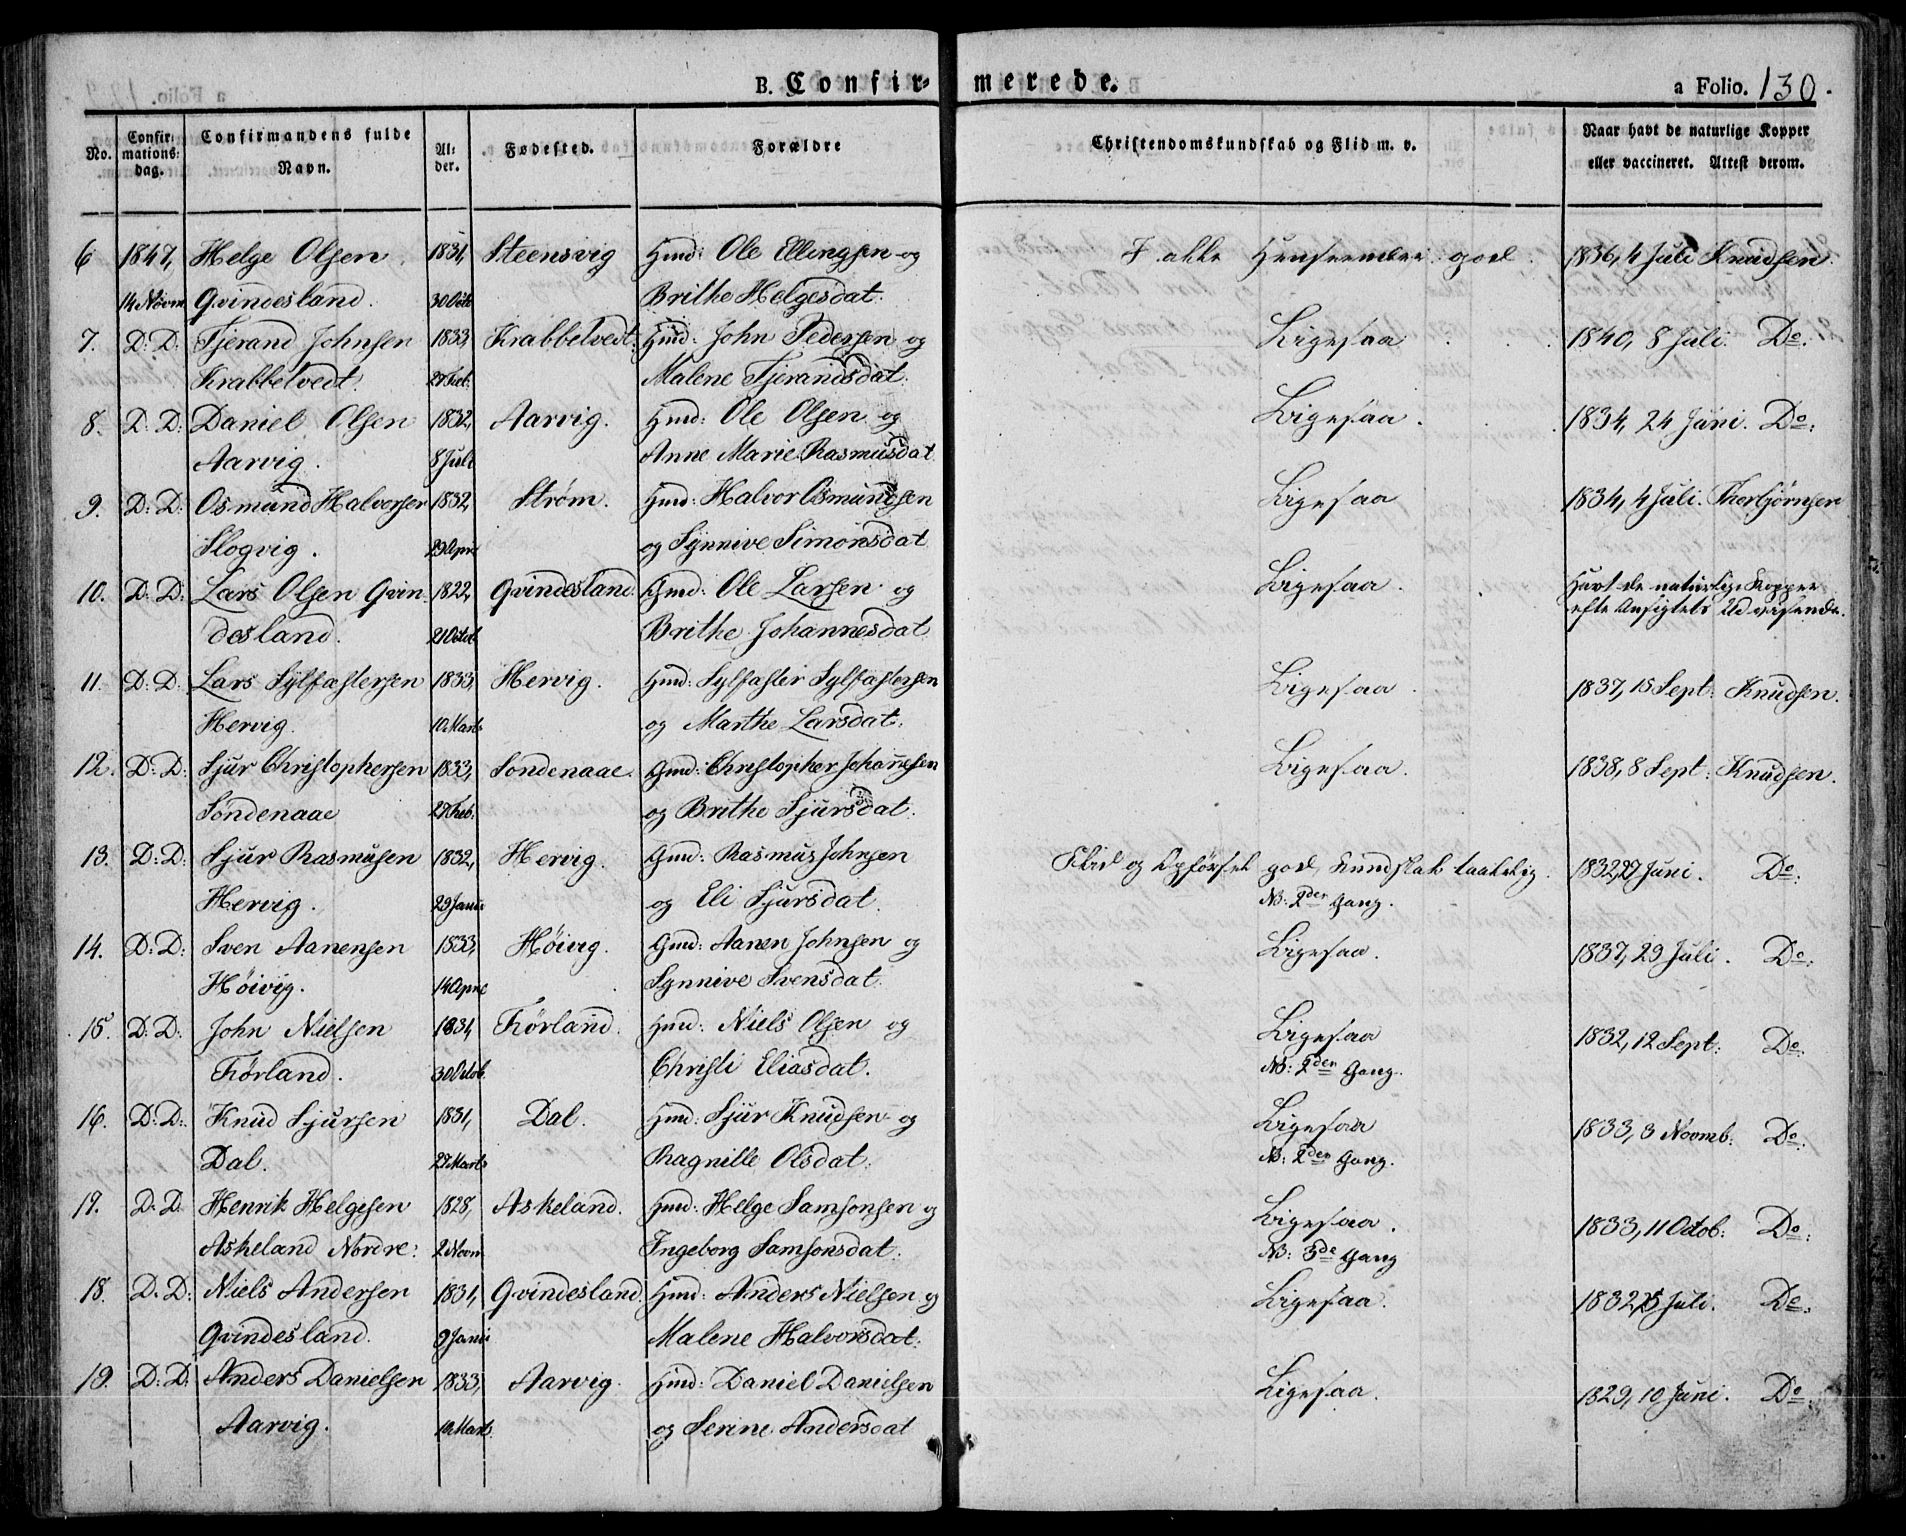 B. Confir- merede. a Folio. 130.
No. Confir- mations- dag. Confirmandens fulde Navn. Al- der. Fødested. Forældre Christendomskundskab og Flid m. v. Naar havt de naturlige Kopper eller vaccineret. Attest derom.
6 1847, Helge Olsen 1831, Steensvig Gmd: Ole Ellingsen og I alle Henseender god. 1836, 4 Juli Knudsen.
14 Novm Qvindesland. 30 Octb Brithe Helgesdat.
7. D: D: Tjerand Johnsen 1833, Krabbetvedt. Gmd: John Pedersen og Ligesaa 1840, 8 Juli. Do:
Krabbetvedt. 27 Feb. Malene Tjerandsdat.
8. D: D: Daniel Olsen 1832, Aarvig. Gmd: Ole Olsen og Ligesaa. 1834, 24 Juni. Do:
Aarvig. 8 Juli Anne Marie Rasmusdat
9. D: D: Osmund Halversen 1832, Strøm. Gmd: Halvor Osmundsen Ligesaa 1834, 4 Juli. Thorbjørnsen
Slogvig. 29 Apri og Synnive Simonsdat
10. D: D: Lars Olsen Qvin- 1822, Qvindesland. Gmd: Ole Larsen og Ligesaa. Havt de naturlige Kopper
desland. 21 Octob. Brithe Johannesdat efte Ansigtets Udvisende.
11. D: D: Lars Sylfæstersen 1833, Hervig. Gmd: Sylfæster Sylfæstersen Ligesaa. 1837, 15 Sept: Knudsen.
Hervig. 10 Marts og Marthe Larsdat.
12. D: D: Sjur Christophersen 1833, Søndenaae. Gmd: Christopher Johannesen Ligesaa. 1838, 8 Sept: Knudsen.
Søndenaae 27 Feb. og Brithe Sjursdat.
13. D: D: Sjur Rasmusen 1832, Hervig. Gmd: Rasmus Johnsen Flid og Opførsel god, Kundskab taalelig. 1832, 27 Juni. Do:
Hervig. 29 Janu og Eli Sjursdat. NB: 2den Gang.
14. D: D: Sven Aanensen 1833, Høivig. Gmd: Aanen Johnsen og Ligesaa. 1837, 29 Juli. Do:
Høivig. 14 Apri Synnive Svensdat.
15. D: D: John Nielsen 1831, Førland. Gmd: Niels Olsen og Ligesaa 1832, 12 Sept: Do:
Førland. 30 Octob. Christi Eliasdat. NB: 2den Gang.
16. D: D: Knud Sjursen 1831, Dal. Gmd: Sjur Knudsen og Ligesaa 1833, 3 Novmb: Do:
Dal. 27 Marts Ragnille Olsdat. NB: 2den Gang.
17. D: D: Henrik Helgesen 1828, Askeland. Gmd: Helge Samsonsen og Ligesaa. 1833, 11 Octob: Do:
Askeland Nordre: 2 Novm Ingeborg Samsonsdat. NB: 3de Gang
18. D: D: Niels Andersen 1831, Qvindesland. Gmd: Anders Nielsen og Ligesaa. 1832, 5 Juli. Do:
Qvindesland. 9 Janu Malene Halvorsdat.
19. D: D: Anders Danielsen 1833, Aarvig. Gmd: Daniel Danielsen Ligesaa. 1829, 10 Juni. Do:
Aarvig. Marts og Serine Andersdat